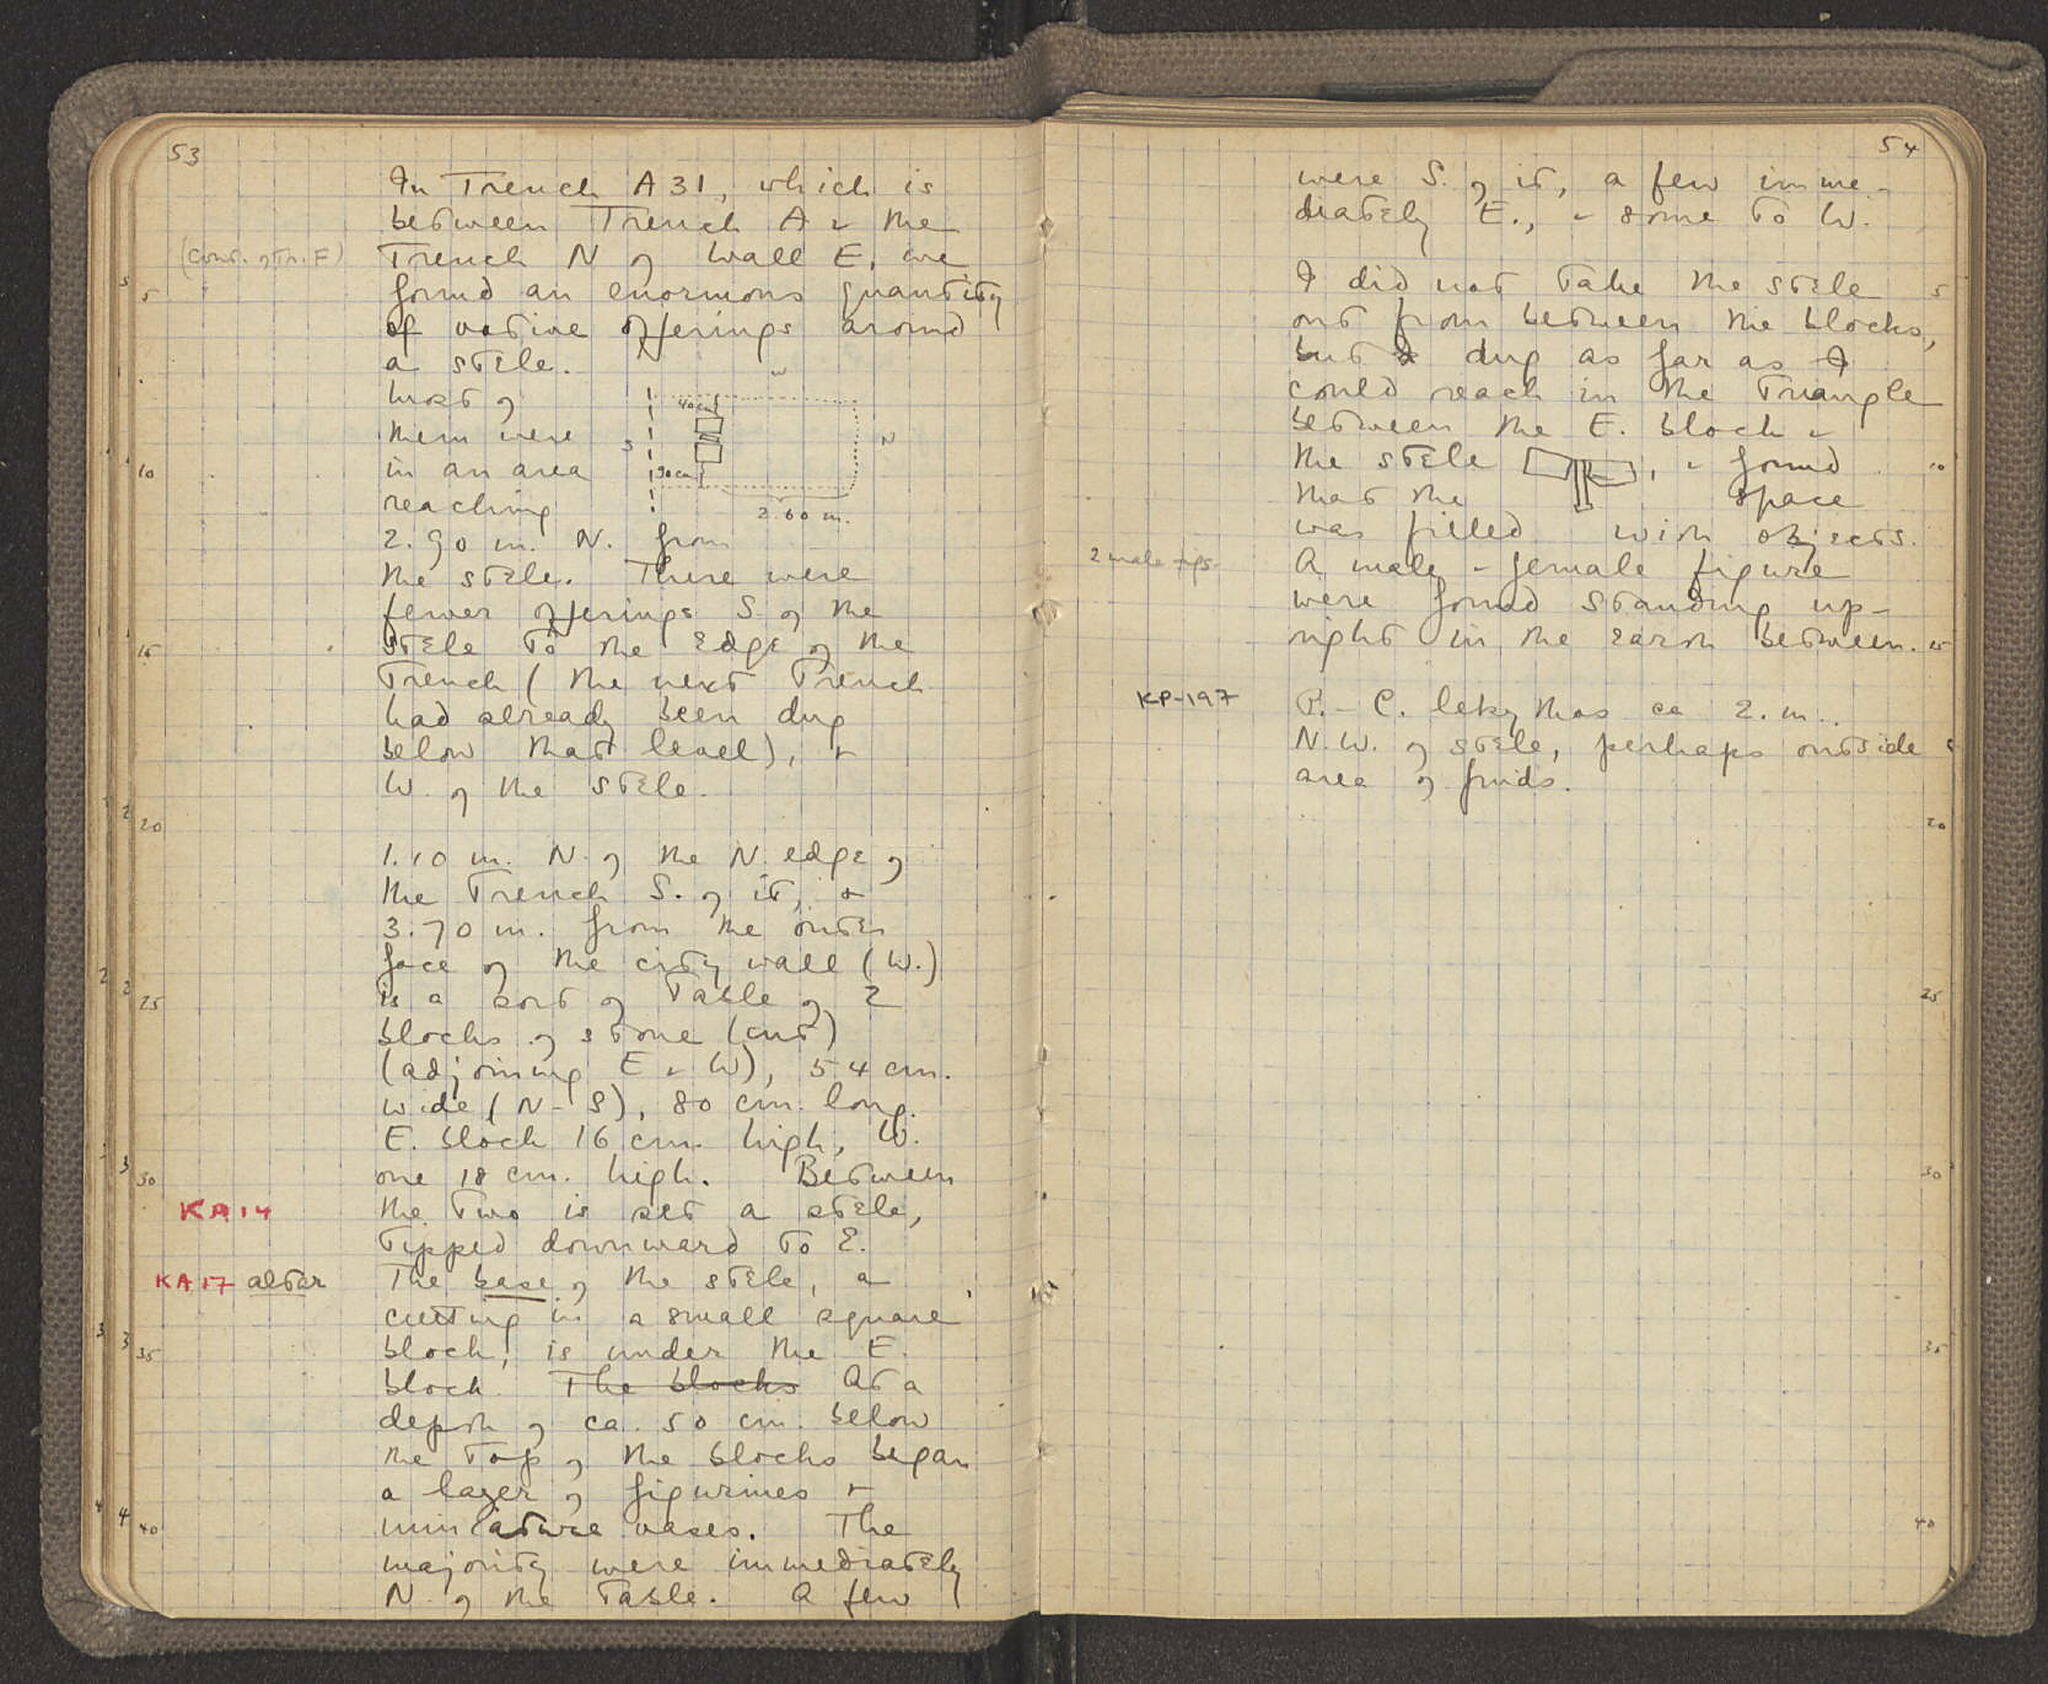 53
In Trench A 31, which is
between Trench A & the
(Cont. of Tr. F) Trench N of Wall E, we
5 found an enormous quantity
of votive offerings around
a stele.
Most of
them were
10 in an area
reaching
W
40 cm
S
N
30 cm
2.60 m.
2.90 m. N. from
the stele. There were
fewer offerings S. of the
15 stele to the edge of the
trench (the next trench
had already been dug
below that level), &
W. of the stele.
20
1.10 m. N. of the N. edge of
the trench S. of it, &
3.70 m. from the outer
face of the city wall (W.)
25 is a sort of table of 2
blocks of stone (cut)
(adjoining E & W), 54 cm.
wide (N-S), 80 cm. long.
E. block 16 cm. high, W.
30 one 18 cm. high. Between
KA 14 the two is set a stele,
tipped downward to E.
KA 17 altar The base of the stele, a
cutting in a small square
35 block, is under the E.
block. The blocks At a
depth of ca. 50 cm. below
the top of the blocks began
a layer of figurines &
40 miniature vases. The
majority were immediately
N. of the table. A few
54
were S. of it, a few imme-
diately E., & some to W.
I did not take the stele 5
out from between the blocks,
but I dug as far as I
could reach in the triangle
between the E. block &
the stele , & found 10
that the space
was filled with objects.
2 male figs. A male & female figure
were found standing up-
right in the earth between. 15
KP-197 P.-C. lekythos ca 2. m.
N.W. of stele, perhaps outside
area of finds.
20
25
30
35
40